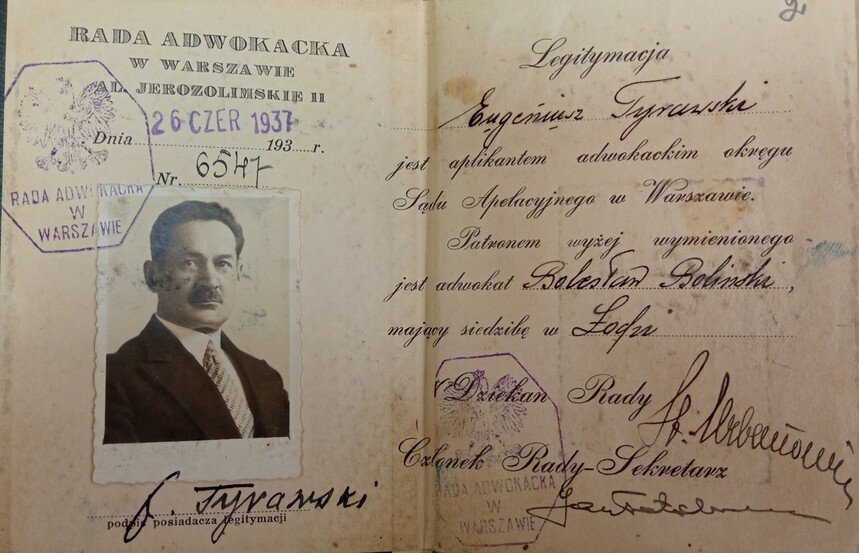 RADA ADWOKACKA
W WARSZAWIE
AL. JEROZOLIMSKIE 11
Dnia 26 CZER 1937 193 r.
Nr. 6547
RADA ADWOKACKA
W
WARSZAWIE
E. Tyrawski
podpis posiadacza legitymacji
Legitymacja
Eugeniusz Tyrawski
jest aplikantem adwokackim okręgu
Sądu Apelacyjnego w Warszawie.
Patronem wyżej wymienionego
jest adwokat Bolesław Boliński,
mający siedzibę w Łodzi
Dziekan Rady
Członek Rady-Sekretarz
RADA ADWOKACKA
W
WARSZAWIE